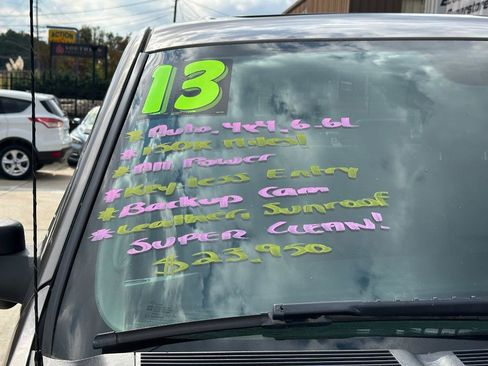 ACTION
13
* Auto. 4x4. 6.6L
* 150K Miles!
* All Power
* Keyless Entry
* Backup Cam
* Leather. Sunroof
* SUPER CLEAN!
$23,950